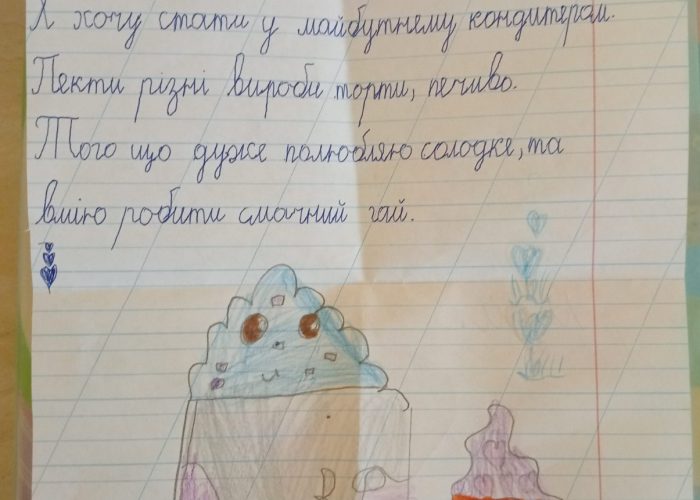 Я хочу стати у майбутньому кондитером.
Пекти різні вироби торти, печиво.
Того що дуже полюбляю солодке, та
вмію робити смачний чай.